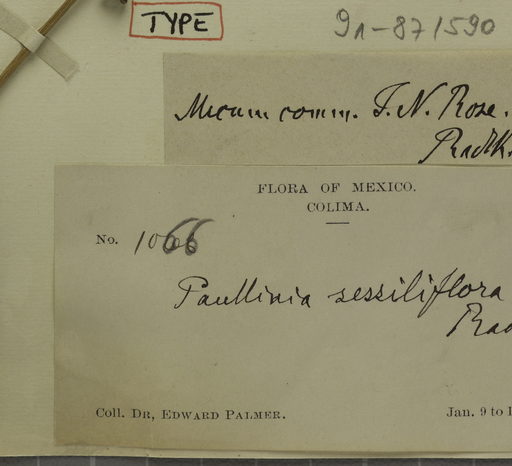 TYPE
9n-871590
Mecum comm. J. N. Rose.
Radlk.
FLORA OF MEXICO.
COLIMA.
No. 1066
Paullinia sessiliflora
Rad
Coll. DR, EDWARD PALMER.
Jan. 9 to